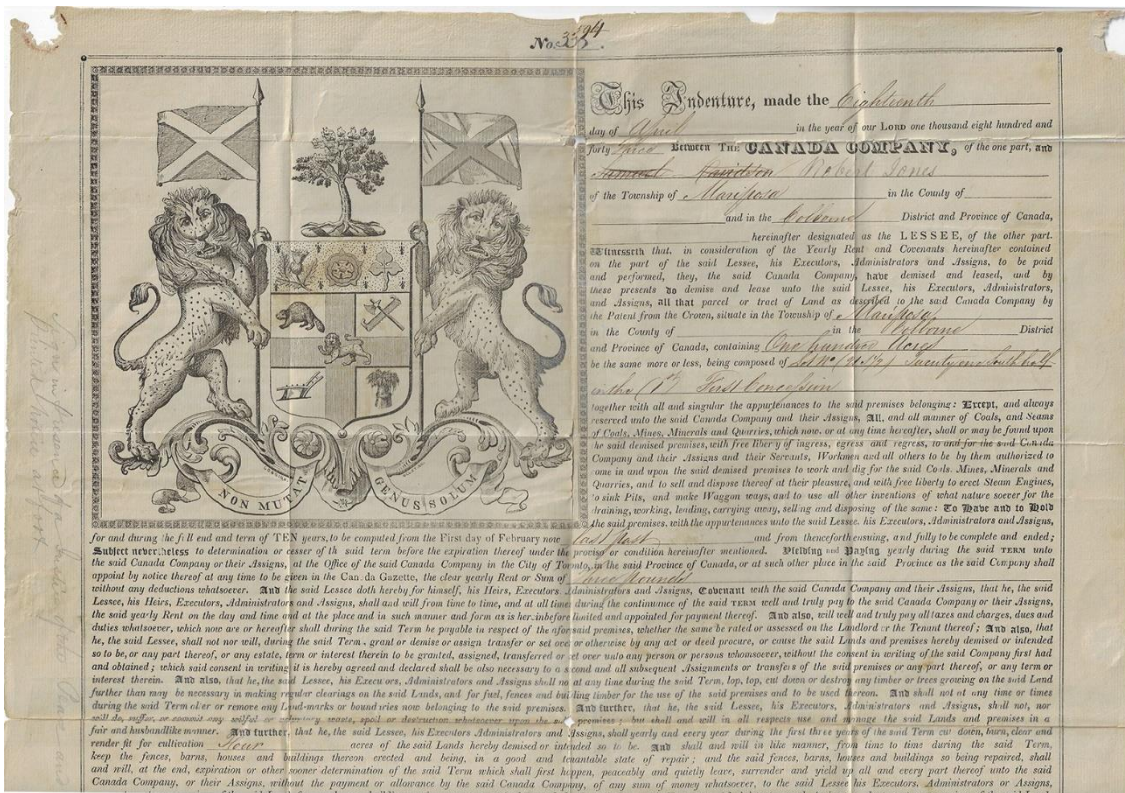 No. 3594.
This Indenture, made the Eighteenth
day of April in the year of our LORD one thousand eight hundred and
forty three Between THE CANADA COMPANY, of the one part, and
Samuel Davidson Robert Jones
of the Township of Mariposa in the County of
and in the Colborne District and Province of Canada,
hereinafter designated as the LESSEE, of the other part.
Witnesseth that, in consideration of the Yearly Rent and Covenants hereinafter contained
on the part of the said Lessee, his Executors, Administrators and Assigns, to be paid
and performed, they, the said Canada Company, have demised and leased, and by
these presents do demise and lease unto the said Lessee, his Executors, Administrators,
and Assigns, all that parcel or tract of Land as described to the said Canada Company by
the Patent from the Crown, situate in the Township of Mariposa
in the County of in the Colborne District
and Province of Canada, containing One hundred Acres
be the same more or less, being composed of Lot No (21 S½) Twenty one South half
in the (1st) First Concession
together with all and singular the appurtenances to the said premises belonging: Except, and always
reserved unto the said Canada Company and their Assigns, All, and all manner of Coals, and Seams
of Coals, Mines, Minerals and Quarries, which now, or at any time hereafter, shall or may be found upon
the said demised premises, with free liberty of ingress, egress and regress, to and for the said Canada
Company and their Assigns and their Servants, Workmen and all others to be by them authorized to
come in and upon the said demised premises to work and dig for the said Coals, Mines, Minerals and
Quarries, and to sell and dispose thereof at their pleasure, and with free liberty to erect Steam Engines,
to sink Pits, and make Waggon ways, and to use all other inventions of what nature soever for the
draining, working, leading, carrying away, selling and disposing of the same: To Have and to Hold
the said premises, with the appurtenances unto the said Lessee, his Executors, Administrators and Assigns,
NON MUTAT GENUS SOLUM
for and during the full end and term of TEN years, to be computed from the First day of February now last past and from thenceforth ensuing, and fully to be complete and ended;
Subject nevertheless to determination or cesser of th said term before the expiration thereof under the proviso or condition hereinafter mentioned. Yielding and Paying yearly during the said TERM unto
the said Canada Company or their Assigns, at the Office of the said Canada Company in the City of Toronto, in the said Province of Canada, or at such other place in the said Province as the said Company shall
appoint by notice thereof at any time to be given in the Canada Gazette, the clear yearly Rent or Sum of Three Pounds
without any deductions whatsoever. And the said Lessee doth hereby for himself, his Heirs, Executors Administrators and Assigns, Covenant with the said Canada Company and their Assigns, that he, the said
Lessee, his Heirs, Executors, Administrators and Assigns, shall and will from time to time, and at all times during the continuance of the said TERM well and truly pay to the said Canada Company or their Assigns,
the said yearly Rent on the day and time and at the place and in such manner and form as is hereinbefore limited and appointed for payment thereof. And also, will well and truly pay all taxes and charges, dues and
duties whatsoever, which now are or hereafter shall during the said Term be payable in respect of the aforesaid premises, whether the same be rated or assessed on the Landlord or the Tenant thereof; And also, that
he, the said Lessee, shall not nor will, during the said Term, grant or demise or assign transfer or set over or otherwise by any act or deed procure, or cause the Lands and premises hereby demised or intended
so to be, or any part thereof, or any estate, term or interest therein to be granted, assigned, transferred or set over unto any person or persons whomsoever, without the consent in writing of the said Company first had
and obtained; which said consent in writing it is hereby agreed and declared shall be also necessary to a second and all subsequent Assignments or transfers of the said premises or any part thereof, or any term or
interest therein. And also, that he, the said Lessee, his Executors, Administrators and Assigns shall not at any time during the said Term, lop, top, cut down or destroy any timber or trees growing on the said Land
further than may be necessary in making regular clearings on the said Lands, and for fuel, fences and building timber for the use of the said premises and to be used thereon. And shall not at any time or times
during the said Term alter or remove any Land-marks or boundries now belonging to the said premises. And further, that he, the said Lessee, his Executors, Administrators and Assigns, shall not, nor
will do, suffer, or commit any wilful or voluntary waste, spoil or destruction whatsoever upon the said premises; but shall and will in all respects use and manage the said Lands and premises in a
fair and husbandlike manner. And further, that he, the said Lessee, his Executors Administrators and Assigns, shall yearly and every year during the first three years of the said Term cut down, burn, clear and
render fit for cultivation Four acres of the said Lands hereby demised or intended so to be. And shall and will in like manner, from time to time during the said Term,
keep the fences, barns, houses and buildings thereon erected and being, in a good and tenantable state of repair; and the said fences, barns, houses and buildings so being repaired, shall
and will, at the end, expiration or other sooner determination of the said Term which shall first happen, peaceably and quietly leave, surrender and yield up all and every part thereof unto the said
Canada Company, or their Assigns, without the payment or allowance by the said Canada Company, of any sum of money whatsoever, to the said Lessee his Executors, Administrators or Assigns,